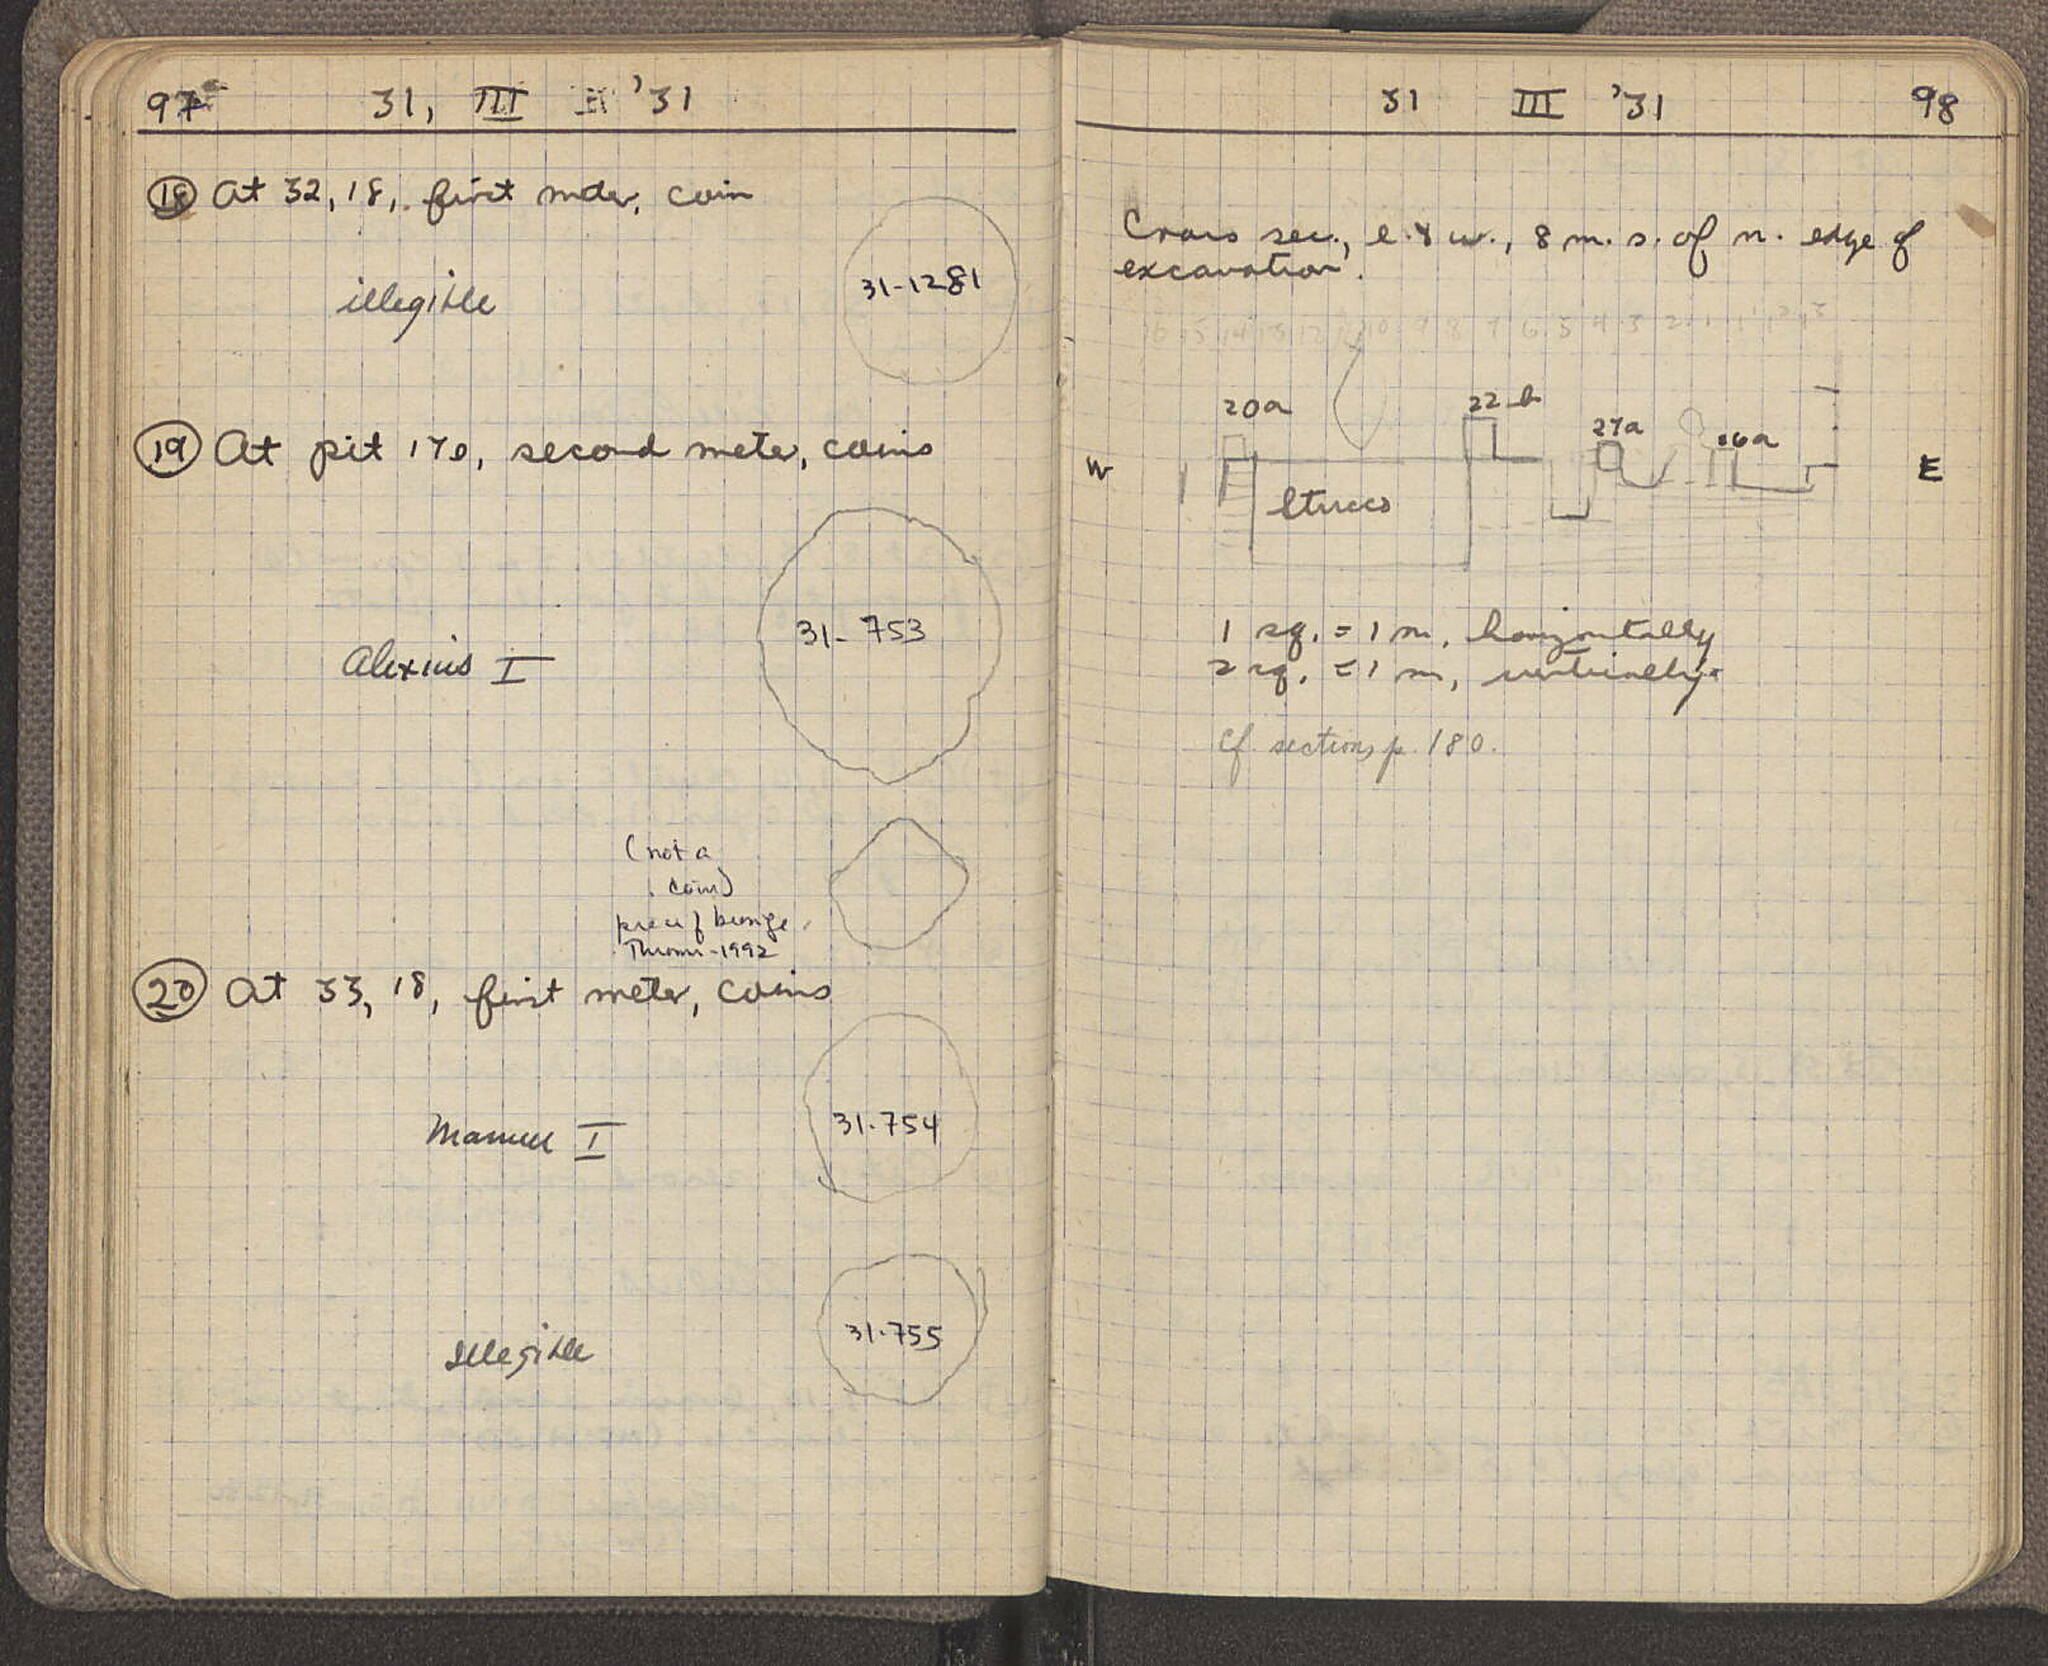 97 31, III '31
18 At 32, 18, first meter, coin
31-1281
illegible
19 At pit 170, second meter, coins
31-753
Alexius I
(not a
coin)
piece of bronze
1992
20 At 33, 18, first meter, coins
31.754
Manuel I
31.755
Illegible
31 III '31 98
Cross sec., e. & w., 8 m. s. of n. edge of
excavation.
16 15 14 13 12 11 10 9 8 7 6 5 4 3 2 1 1 2 3
20a 22b 27a 16a
W E
Stucco
1 sq. = 1 m, horizontally
2 sq. = 1 m, vertically.
Cf. sections p. 180.